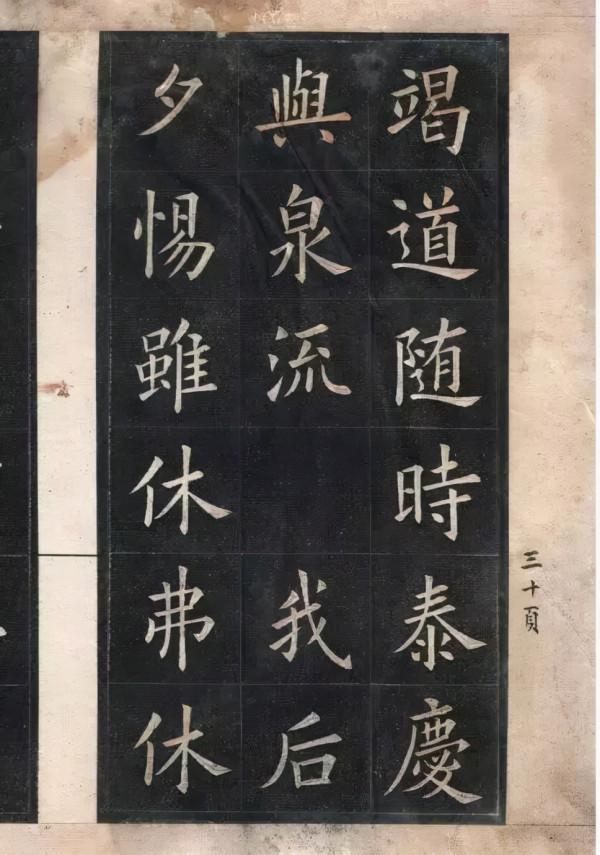 竭道随時泰慶
與泉流 我后
夕惕雖休弗休
三十頁